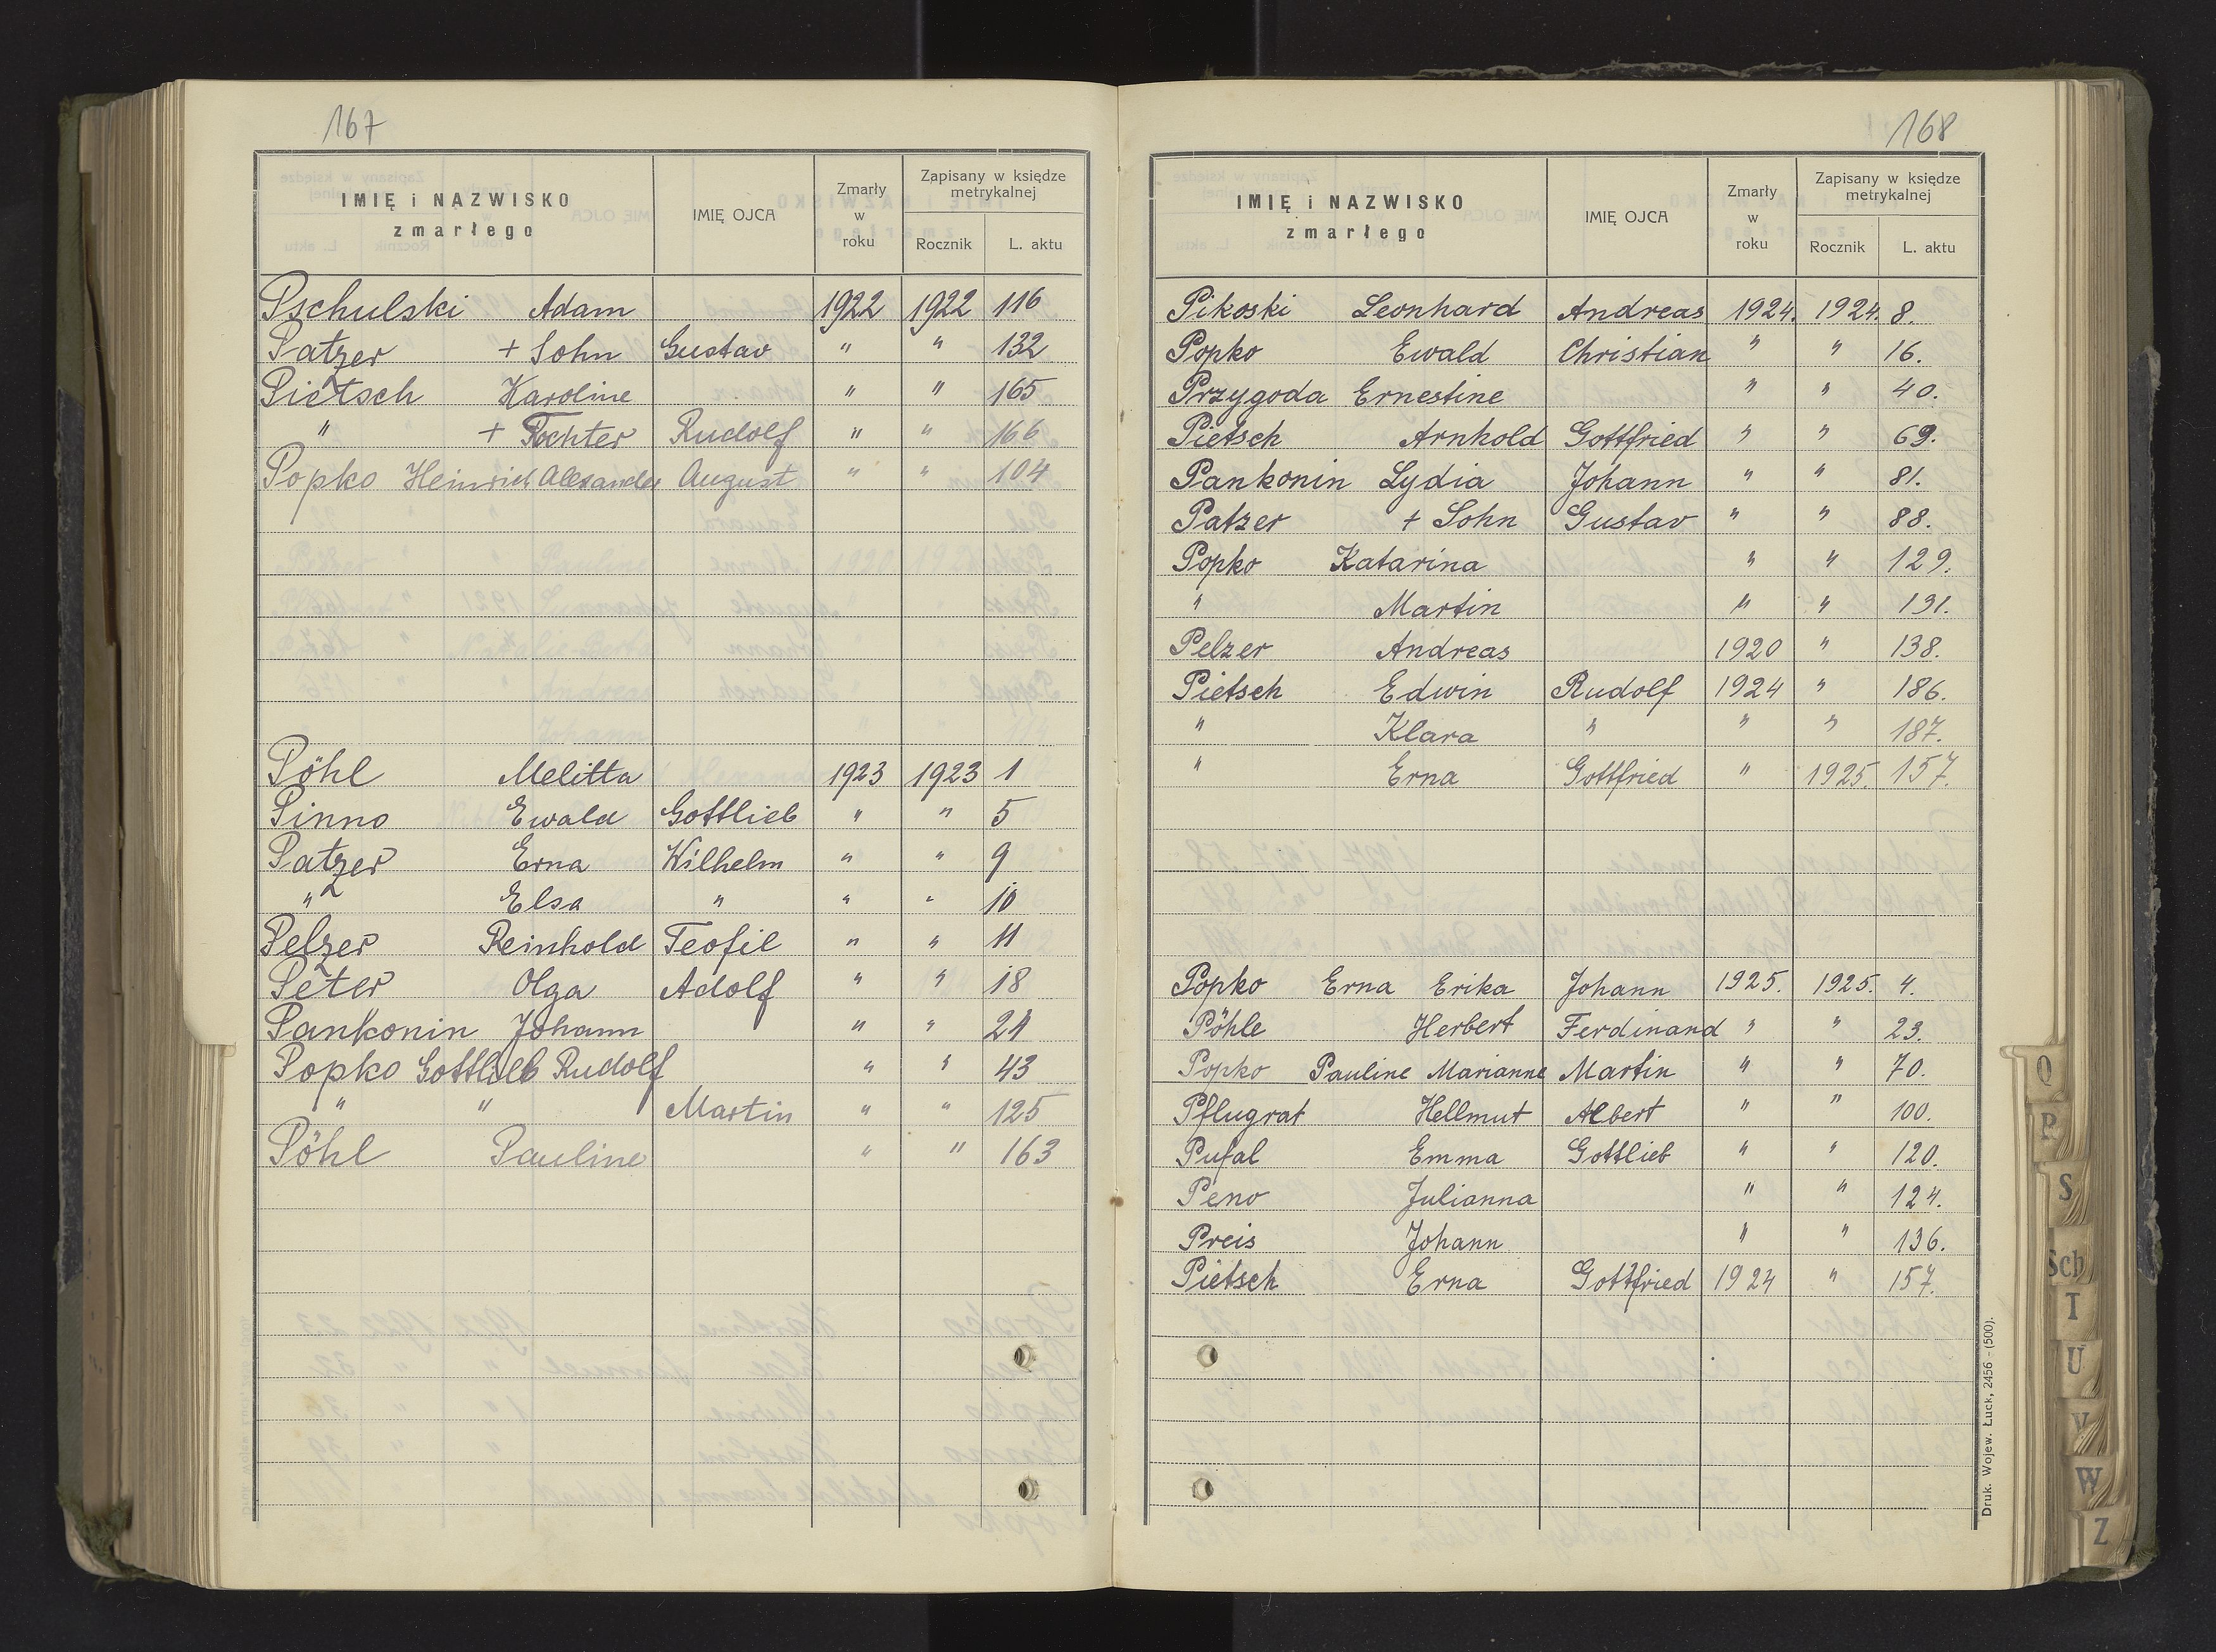 167
IMIĘ i NAZWISKO zmarłego IMIĘ OJCA Zmarły w roku Zapisany w księdze metrykalnej Rocznik L. aktu
Pschulski Adam 1922 1922 116
Patzer + Sohn Gustav " " 132
Pietsch Karoline " " 165
" + Tochter Rudolf " " 166
Popko Heinrich Alexander August " " 104
Pöhl Melitta 1923 1923 1
Pinno Ewald Gottlieb " " 5
Patzer Erna Wilhelm " " 9
" Elsa " " " 10
Pelzer Reinhold Teofil " " 11
Peter Olga Adolf " " 18
Pankonin Johann " " 21
Popko Gottlieb Rudolf " " 43
" " Martin " " 125
Pöhl Pauline " " 163
168
IMIĘ i NAZWISKO zmarłego IMIĘ OJCA Zmarły w roku Zapisany w księdze metrykalnej Rocznik L. aktu
Pikoski Leonhard Andreas 1924. 1924. 8.
Popko Ewald Christian " " 16.
Przygoda Ernestine " " 40.
Pietsch Arnhold Gottfried " " 69.
Pankonin Lydia Johann " " 81.
Patzer + Sohn Gustav " " 88.
Popko Katarina " " 129.
" Martin " " 131.
Pelzer Andreas 1920 " 138.
Pietsch Edwin Rudolf 1924 " 186.
" Klara " " " 187.
" Erna Gottfried " 1925. 157.
Popko Erna Erika Johann 1925. 1925. 4.
Pöhle Herbert Ferdinand " " 23.
Popko Pauline Marianne Martin " " 70.
Pflugrat Hellmut Albert " " 100.
Pufal Emma Gottlieb " " 120.
Peno Julianna " " 124.
Preis Johann " " 136.
Pietsch Erna Gottfried 1924 " 157.
Druk. Wojew. Łuck, 2456 - (500).
Q
P
S
Sch
T
U
V
W
Z